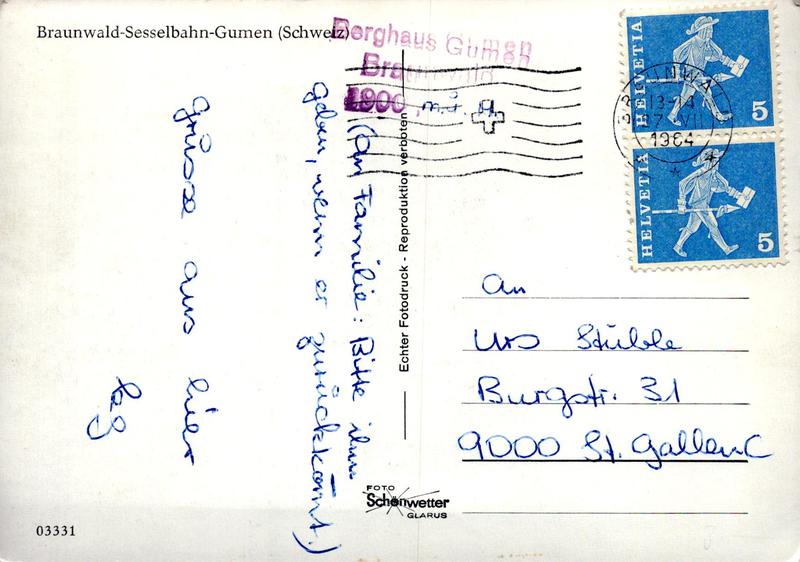 Braunwald-Sesselbahn-Gumen (Schweiz)
Berghaus Gumen
Braunwald
1900 m.ü.M.
HELVETIA
5
HELVETIA
5
BRAUNWALD
1964
(An Familie: Bitte ihm
geben, wenn er zurückkommt.)
Grüsse aus hier
Echter Fotodruck - Reproduktion verboten
An
Urs Stüble
Burgstr. 31
9000 St. Gallen C
FOTO
Schönwetter
GLARUS
03331